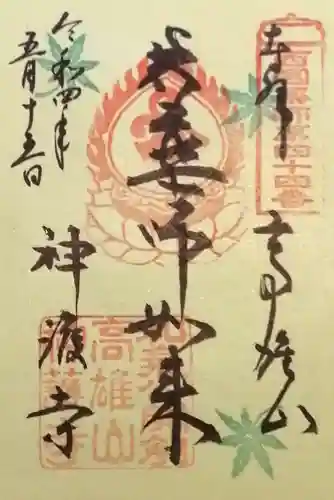 西國薬師第四十四番
奉拝
高雄山
薬師如来
神護寺
令和四年
五月十五日
高雄山
神護寺